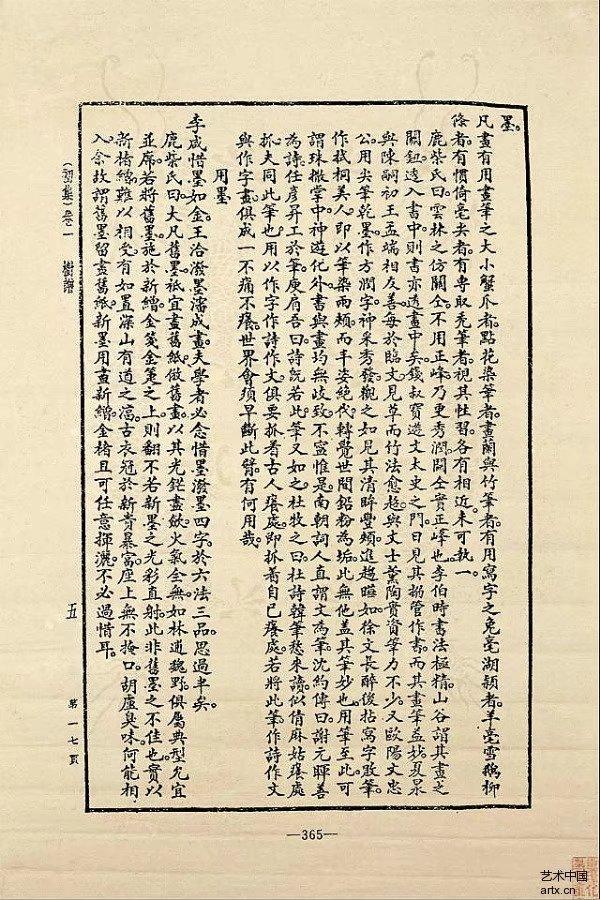 墨。
凡畫有用畫筆之大小蟹爪者。點花染筆者。畫蘭與竹筆者。有用寫字之兔毫湖穎者。羊毫雪鵝柳
條者。有慣倚毫尖者。有專取禿筆者。視其性習。各有相近。未可執一。
鹿柴氏曰。雲林之仿關仝。不用正峰。乃更秀潤。關仝實正峰也。李伯時書法極精。山谷謂其畫之
關鈕。透入書中。則書亦透畫中矣。錢叔寶遊文太史之門。日見其搦管作書。而其畫筆益妙。夏㫤
與陳嗣初王孟端相友善。每於臨文見草。而竹法愈超。與文士薰陶。實資筆力不少。又歐陽文忠
公用尖筆乾墨作方濶字。神采秀發。觀之如見其清眸豐頰。進趨曄如。徐文長醉後拈寫字敗筆。
作拭桐美人。即以筆染兩頰。而丰姿絕代。轉覺世間鉛粉為垢。此無他。蓋其筆妙也。用筆至此。可
謂珠撒掌中。神遊化外。書與畫均無歧致。不寧惟是。南朝詞人直謂文為筆。沈約傳曰。謝元暉善
為詩。任彥昇工於筆。庾肩吾曰。詩既若此。筆又如之。杜牧之曰。杜詩韓筆愁來讀。似倩麻姑癢處
抓。夫同此筆也。用以作字作詩作文。俱要抓着古人癢處。即抓着自已癢處。若將此筆作詩作文
與作字畫。俱成一不痛不癢世界。會須早斷此臂。有何用哉。
用墨
李成惜墨如金。王洽潑墨瀋成畫。夫學者必念惜墨潑墨四字。於六法三品。思過半矣。
鹿柴氏曰。大凡舊墨祇宜畫舊紙。倣舊畫。以其光鋩盡歛。火氣全無。如林逋魏野。俱屬典型。允宜
並席。若將舊墨施於新繒金箋金箑之上。則翻不若新墨之光彩直射。此非舊墨之不佳也。實以
新楮繒難以相受。有如置深山有道之淄古衣冠於新貴暴富座上。無不掩口胡盧。臭味何能相
入。余故謂舊墨留畫舊紙。新墨用畫新繒金楮。且可任意揮灑。不必過惜耳。
(初集)卷一 樹譜
五
第一七頁
—365—
艺术中国
artx.cn